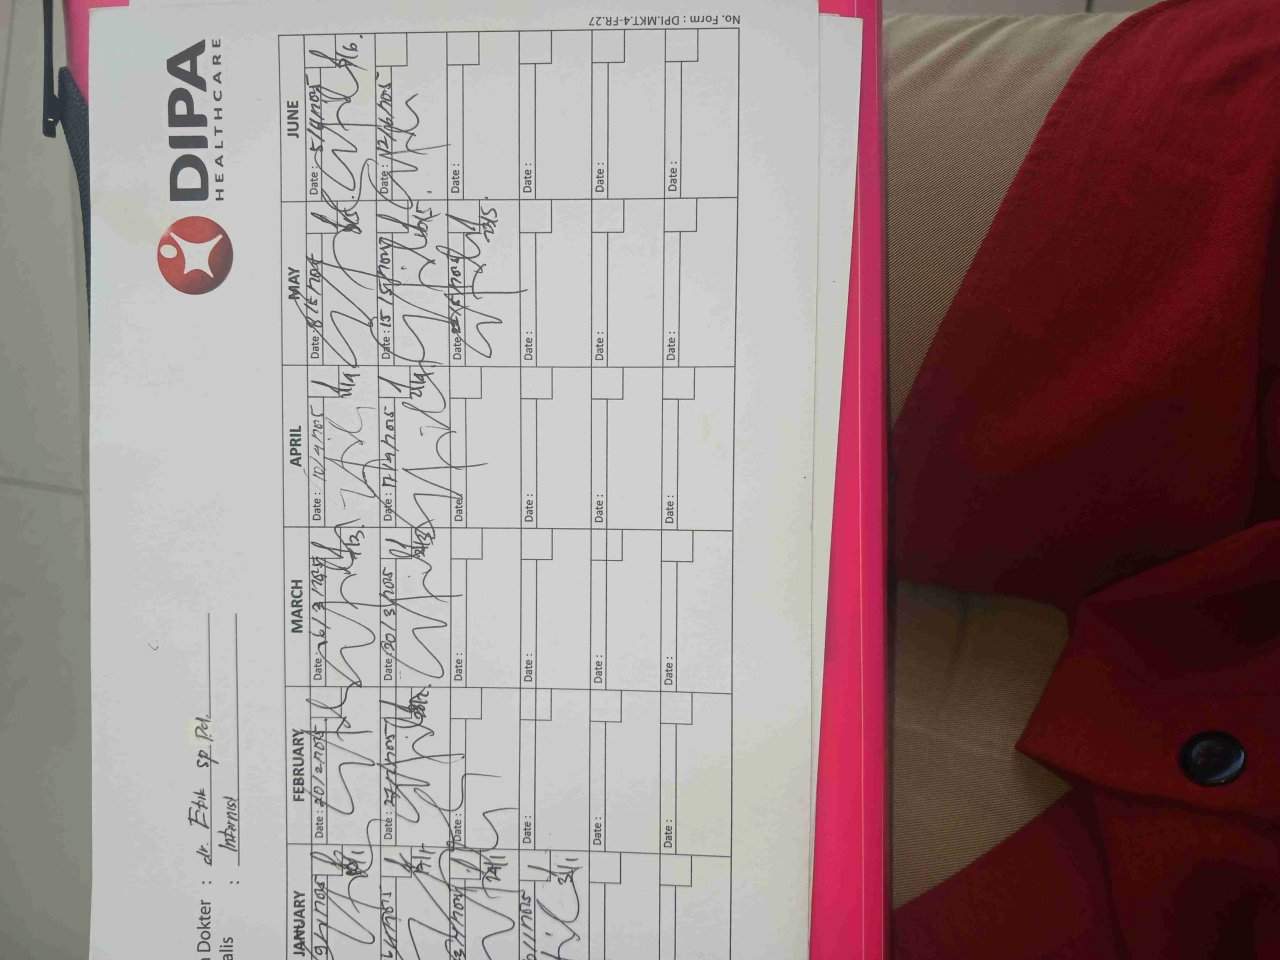 DIPA
HEALTHCARE
Dokter : dr. Etik sp PD.
alis : Internist
JANUARY FEBRUARY MARCH APRIL MAY JUNE
Date : 20/2/2025 Date : 6/3/2025 Date : 10/4/2025 Date : 8/5/2025 Date : 5/6/2025
10/1 7/3. 11/4 5/6.
Date : 27/2/2025 Date : 20/3/2025 Date : 17/4/2025 Date : 15/5/2025 Date : 12/6/2025
17/1 28/2. 21/3
Date : Date : Date : Date : 22/5/2025 Date :
24/1 23/5.
Date : Date : Date : Date : Date :
31/1
Date : Date : Date : Date : Date :
Date : Date : Date : Date : Date :
No. Form : DPI.MKT.4-FR.27